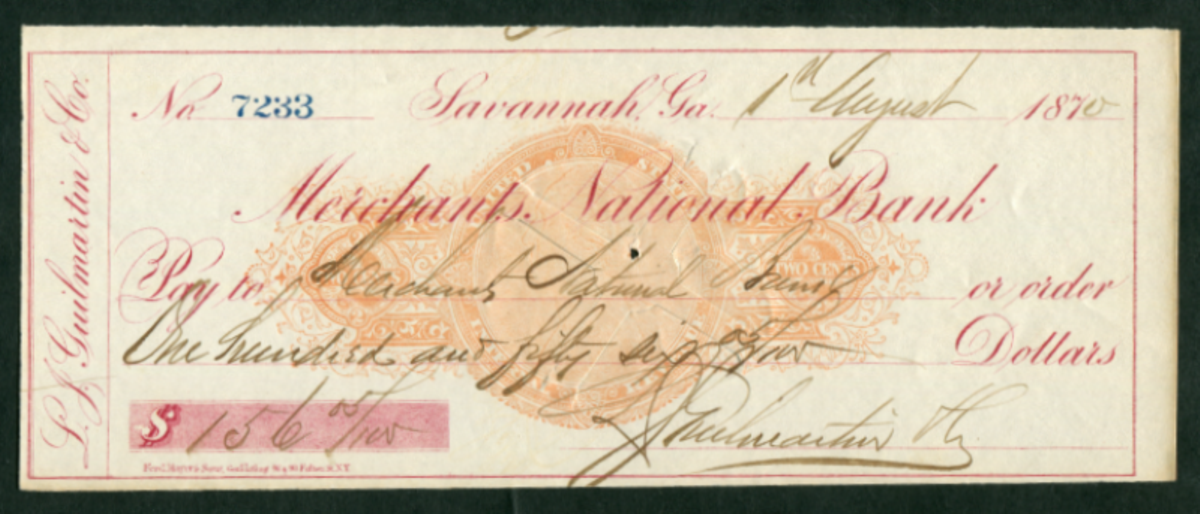 L. J. Guilmartin & Co.
No. 7233 Savannah, Ga. 1st August 1870
Merchants National Bank
Pay to Merchants National Bank or order
One hundred and fifty six 05/100 Dollars
$ 156 05/100
L J Guilmartin & Co
TWO CENTS